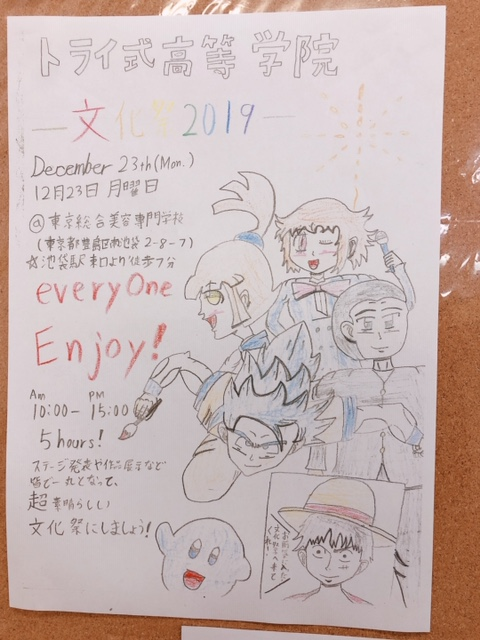 トライ式高等学院
—文化祭2019—
December 23th (Mon.)
12月23日 月曜日
@東京総合美容専門学校
(東京都豊島区南池袋2-8-7)
☆池袋駅東口より徒歩7分
everyOne
Enjoy!
Am PM
10:00- 15:00
5hours!
ステージ発表や作品展示など
皆で一丸となって、
超素晴らしい
文化祭にしましょう!
文化祭へ来て
くれ!